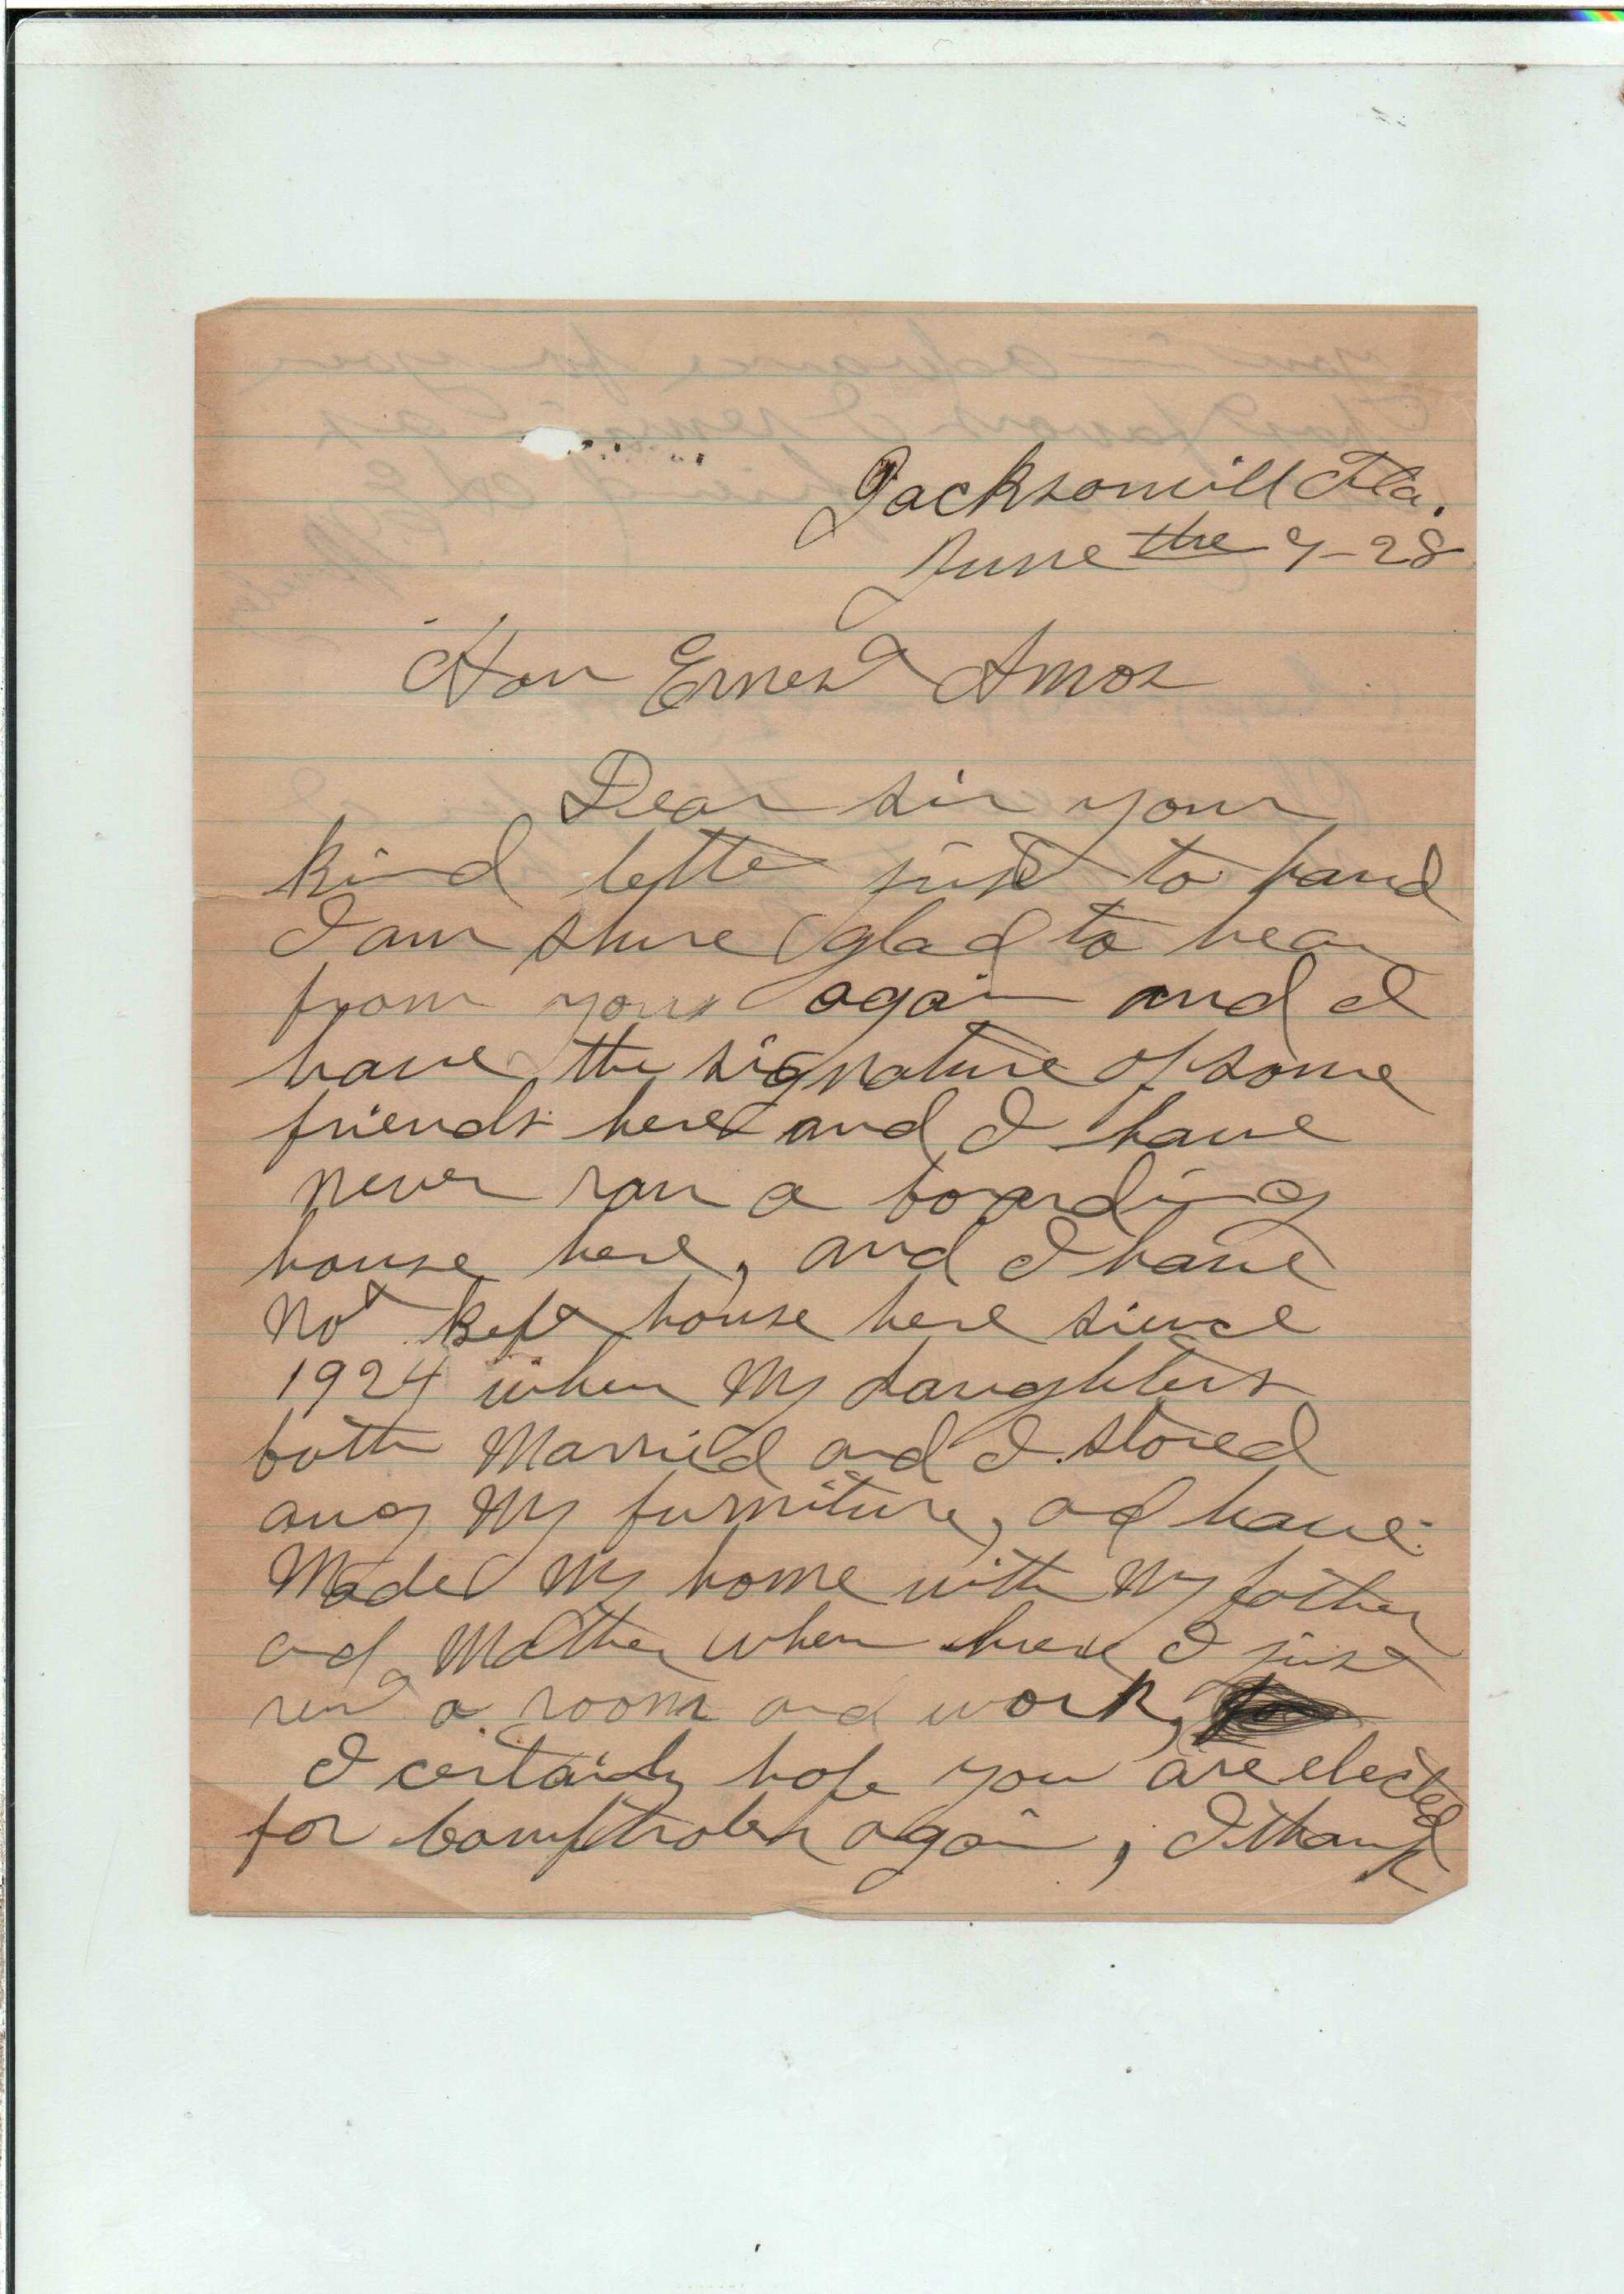 Jacksonvill Fla.
June the 7-28
Hon Ernest Amos
Dear sir your
kind letter just to hand
I am shure glad to hear
from you again and I
have the signature of some
friends here and I have
never ran a boarding
house here, and I have
not kept house here sience
1924 when my daughters
both married and I stored
my furniture, ad have
made my home with my father
ad mother when here I just
rent a room and work,
I certainly hope you are elected
for Comptroler again, I thank